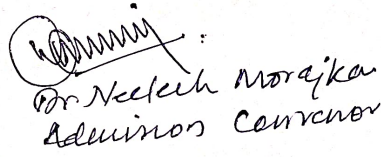 Dr. Neelesh Morajkar
Admission Convenor